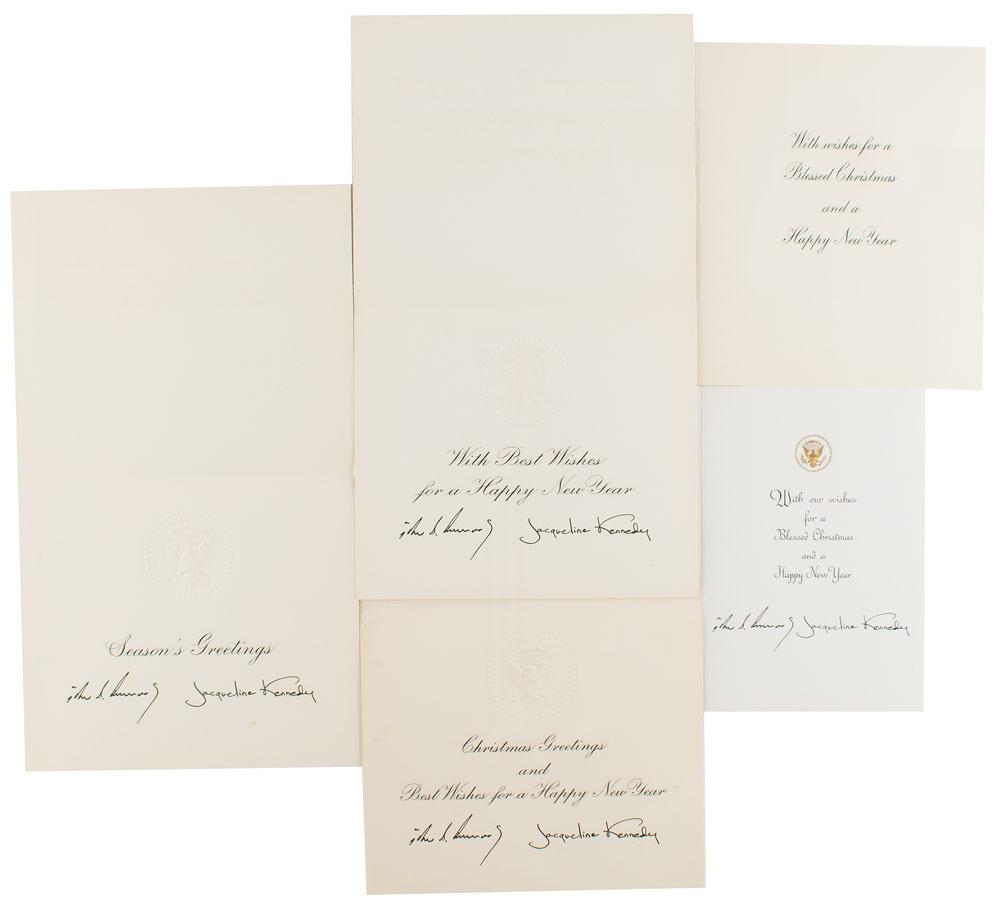 Season's Greetings
Jacqueline Kennedy
With Best Wishes
for a Happy New Year
Jacqueline Kennedy
Christmas Greetings
and
Best Wishes for a Happy New Year
Jacqueline Kennedy
With wishes for a
Blessed Christmas
and a
Happy New Year
With our wishes
for a
Blessed Christmas
and a
Happy New Year
Jacqueline Kennedy